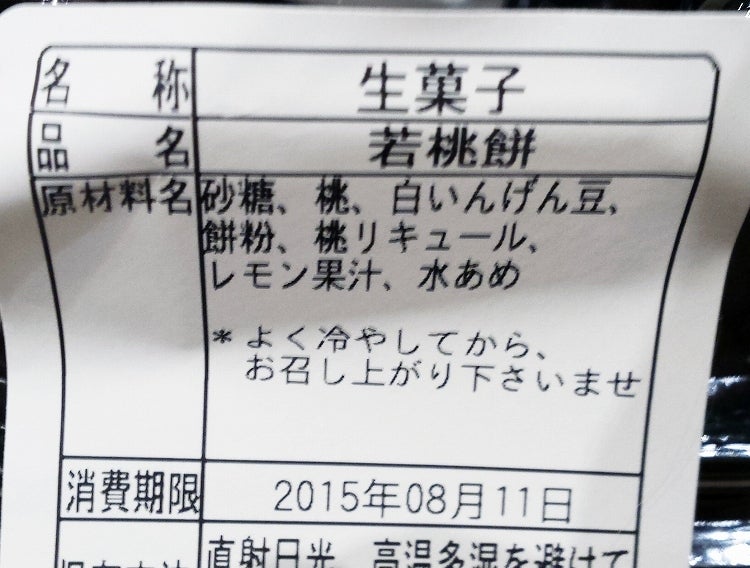 名称 生菓子
品名 若桃餅
原材料名 砂糖、桃、白いんげん豆、
餅粉、桃リキュール、
レモン果汁、水あめ
*よく冷やしてから、
お召し上がり下さいませ
消費期限 2015年08月11日
直射日光、高温多湿を避けて